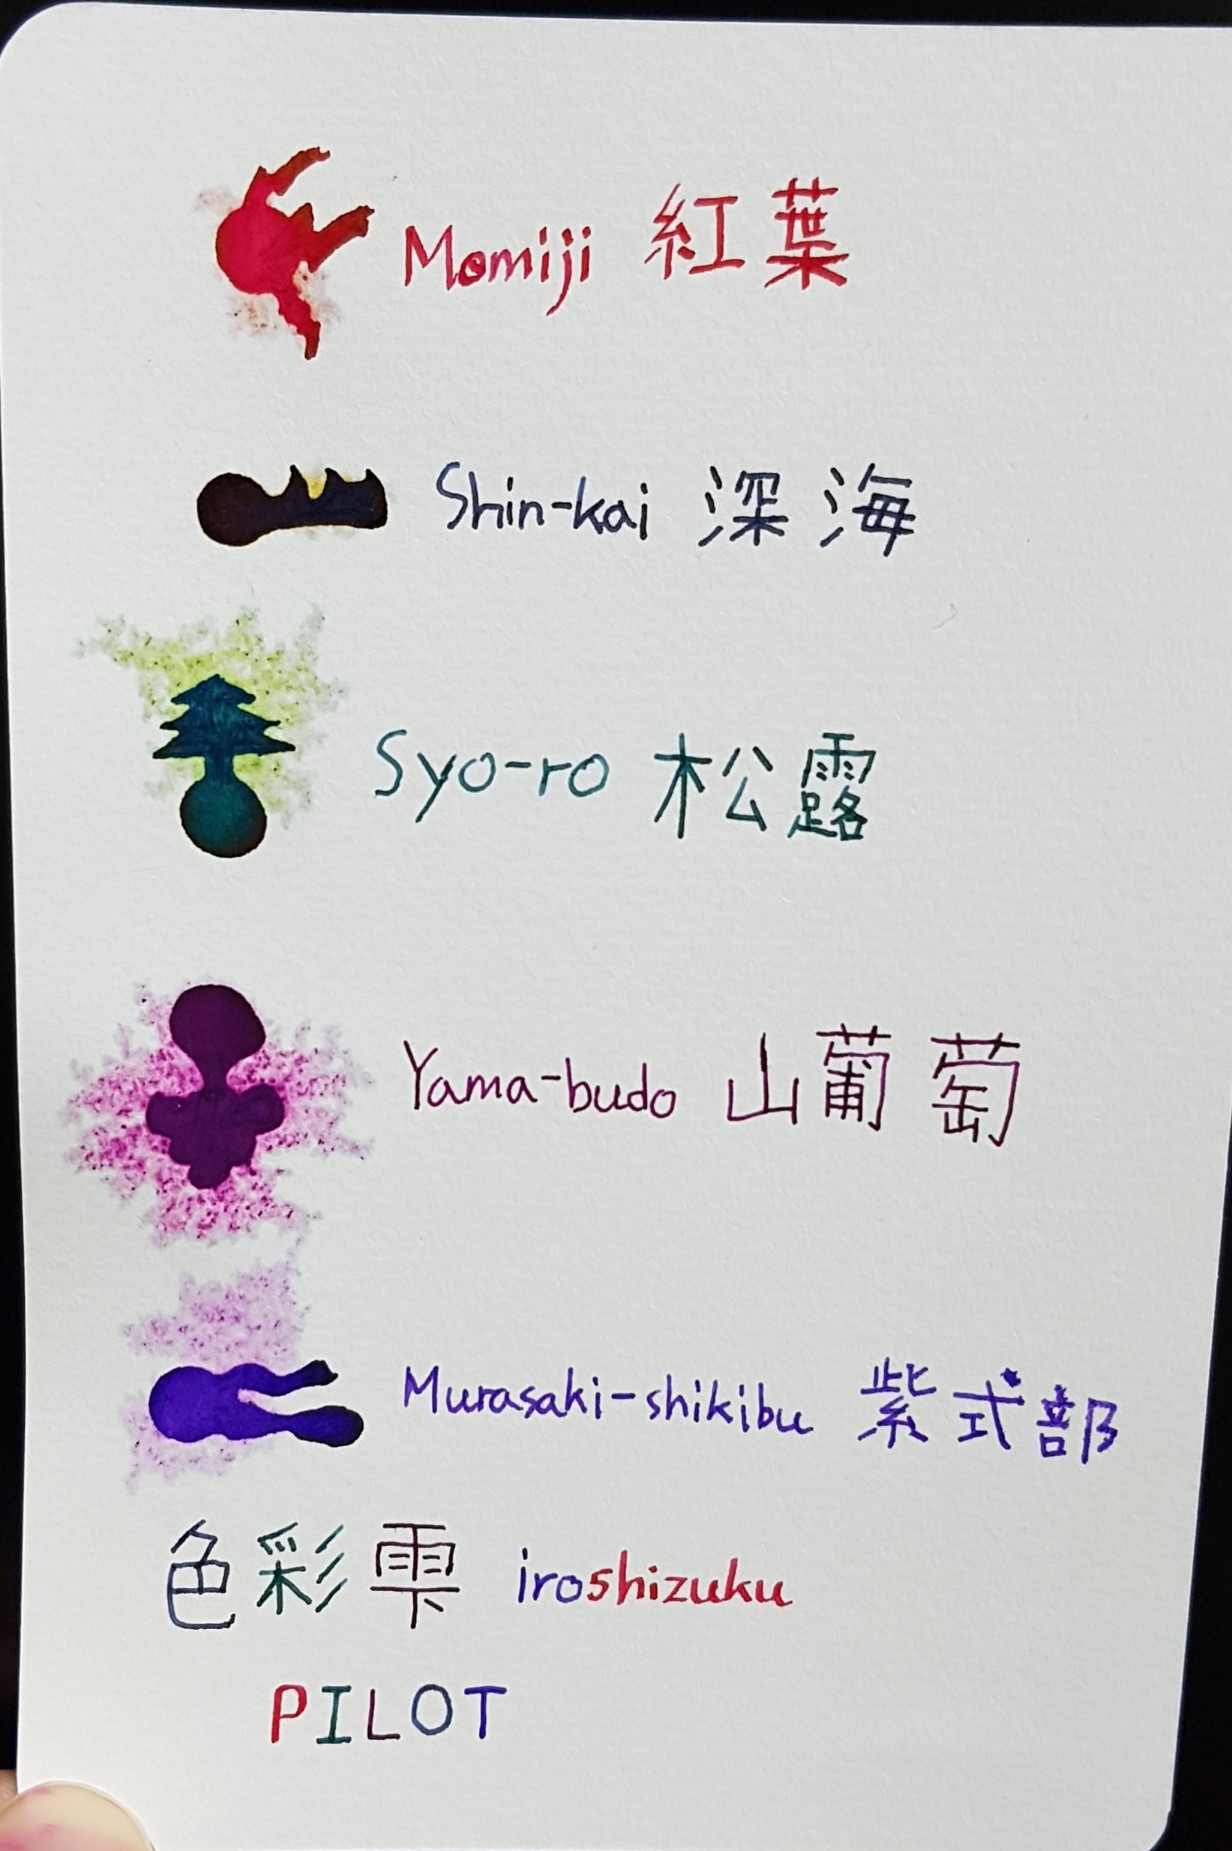 Momiji 紅葉
Shin-kai 深海
Syo-ro 松露
Yama-budo 山葡萄
Murasaki-shikibu 紫式部
色彩雫 iroshizuku
PILOT